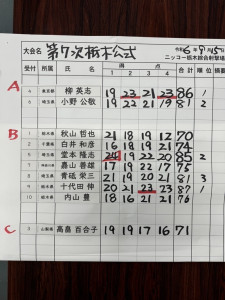 大会名 第7次栃木公式 令和6年9月15日
ニッコー栃木綜合射撃場
受付 所属 氏名 得点 合計 順位 摘要
1 2 3 4
A
4 東京都 柳 英志 19 22 21 23 86 1
6 埼玉県 小野 公敬 19 22 21 19 81 2
B
1 栃木県 秋山 哲也 21 18 19 12 70
2 千葉県 白井 和彦 18 18 19 19 74
5 埼玉県 堂本 隆志 24 19 22 20 85 2
7 栃木県 嘉山 善雄 17 19 22 17 75
8 埼玉県 青砥 栄三 21 19 20 21 81 3
9 栃木県 十代田 伸 20 21 23 23 87 1
10 内山 豊 18 16 21 21 76
C
3 山梨県 高島 百合子 19 19 17 16 71